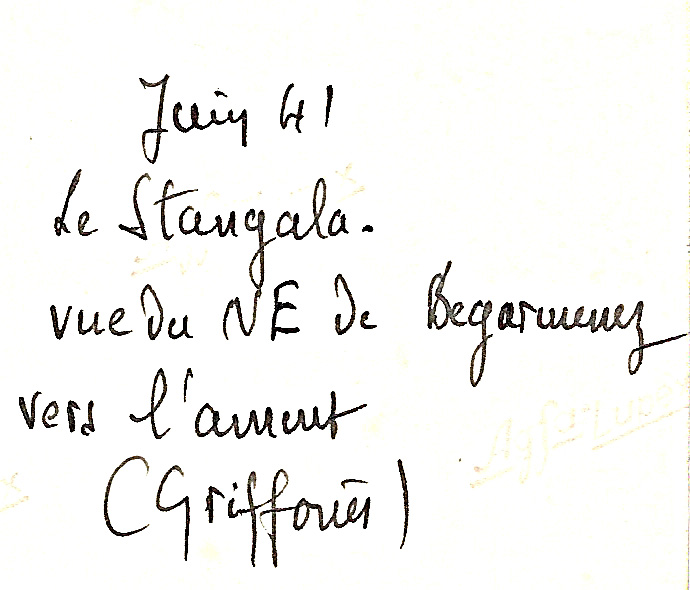 Juin 41
Le Stangala.
vue du NE de Begarmenez
vers l'amont
(Griffonès)
Agfa-Lupex